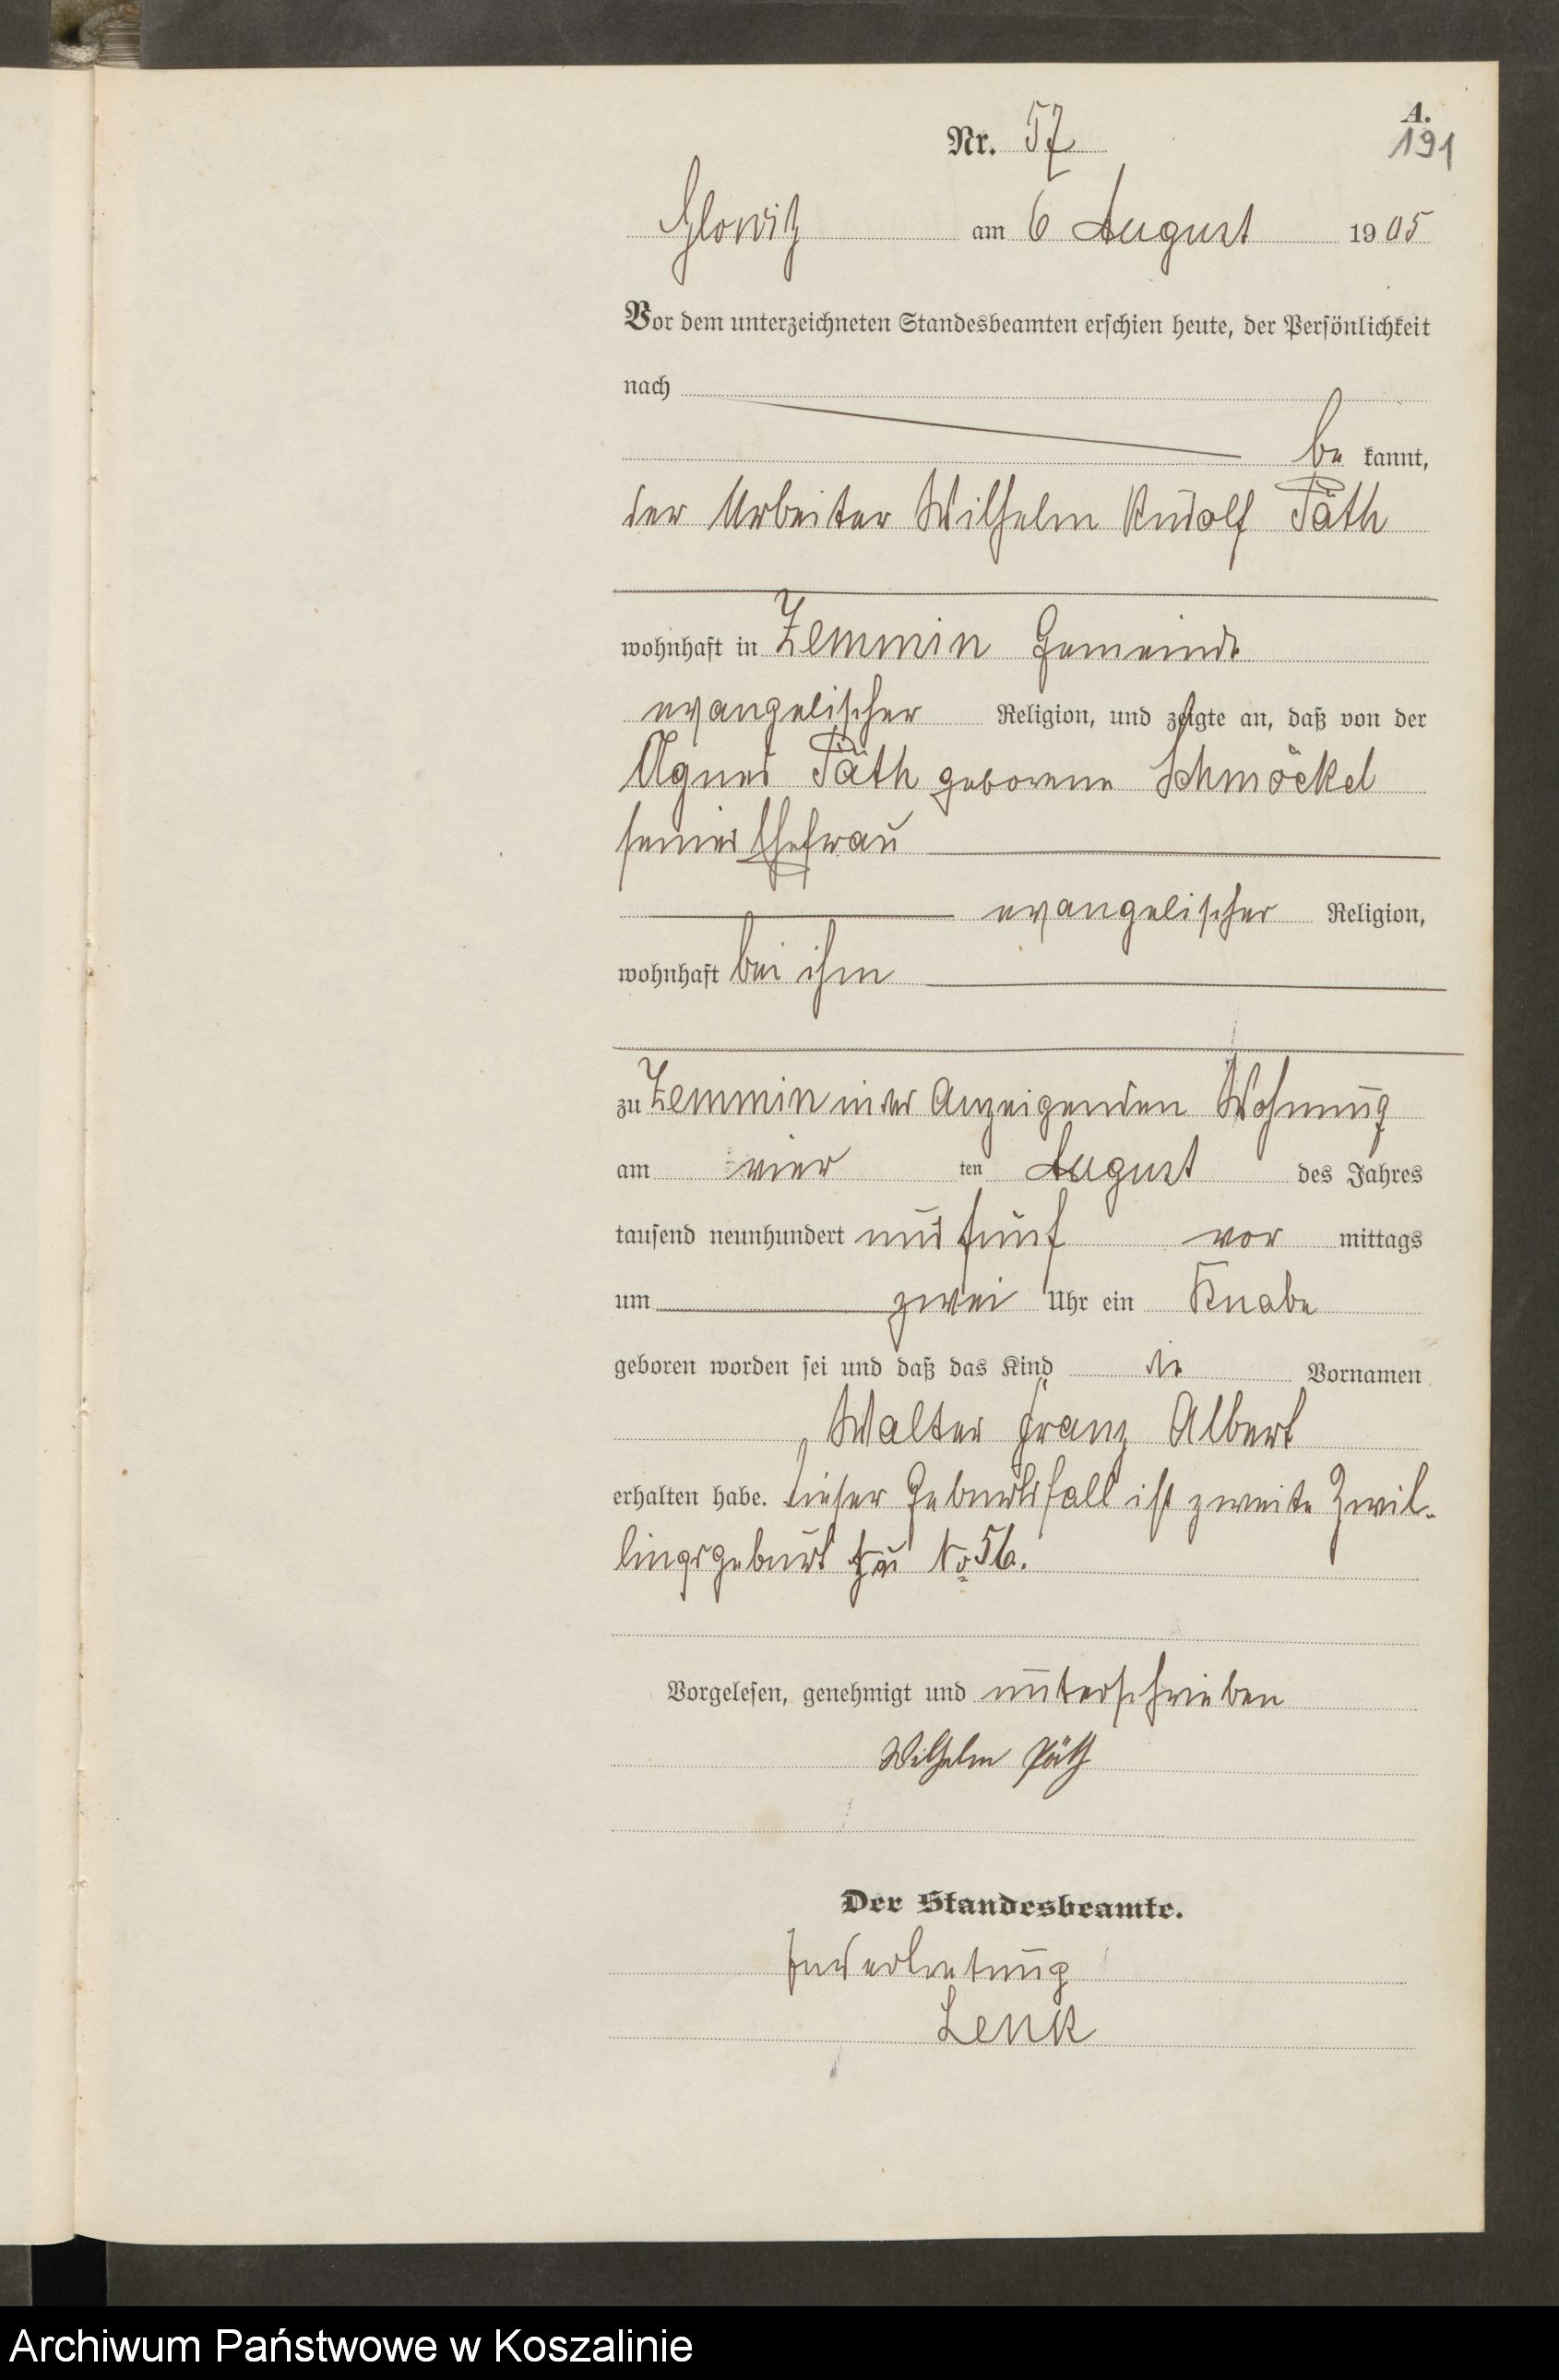 A.
Nr. 57
191
Glowitz am 6 August 1905
Vor dem unterzeichneten Standesbeamten erschien heute, der Persönlichkeit
nach
be kannt,
der Arbeiter Wilhelm Rudolf Päth
wohnhaft in Zemmin Gemeinde
evangelischer Religion, und zeigte an, daß von der
Agnes Päth geborene Schmöckel
seiner Ehefrau
evangelischer Religion,
wohnhaft bei ihm
zu Zemmin in des Anzeigenden Wohnung
am vier ten August des Jahres
tausend neunhundert und fünf vor mittags
um zwei Uhr ein Knabe
geboren worden sei und daß das Kind die Vornamen
Walter Franz Albert
erhalten habe. Dieser Geburtsfall ist zweite Zwil-
lingsgeburt zu No 56.
Vorgelesen, genehmigt und unterschrieben
Wilhelm Päth
Der Standesbeamte.
In Vertretung
Lenk
Archiwum Państwowe w Koszalinie